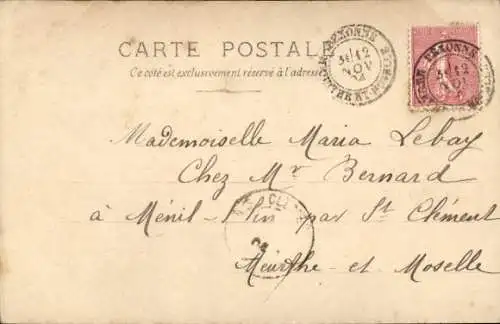 CARTE POSTALE
Ce côté est exclusivement réservé à l'adresse
31 12
NOV
31 12
NOV
Mademoiselle Maria Lebay
Chez Mr Bernard
à Ménil-Flin par St Clément
Meurthe-et-Moselle